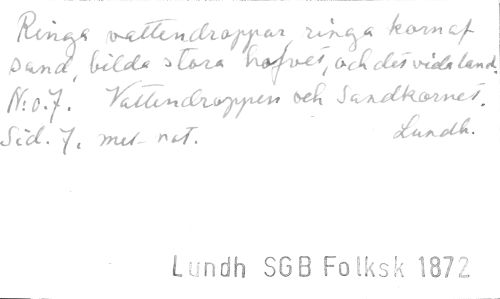 Ringa vattendroppar, ringa korn af
sand, bilda stora hafvet, och det vida land.
N:o. 7. Vattendroppen och Sandkornet.
Sid. 7. met- not. Lundh.
Lundh SGB Folksk 1872